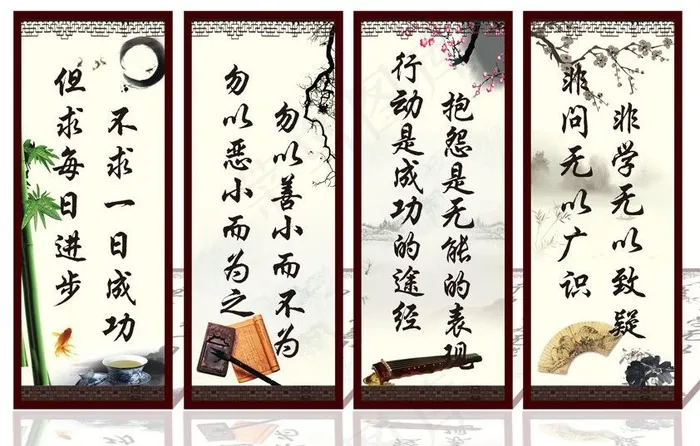 不求一日成功
但求每日进步
勿以善小而不为
勿以恶小而为之
抱怨是无能的表现
行动是成功的途经
非学无以致疑
非问无以广识